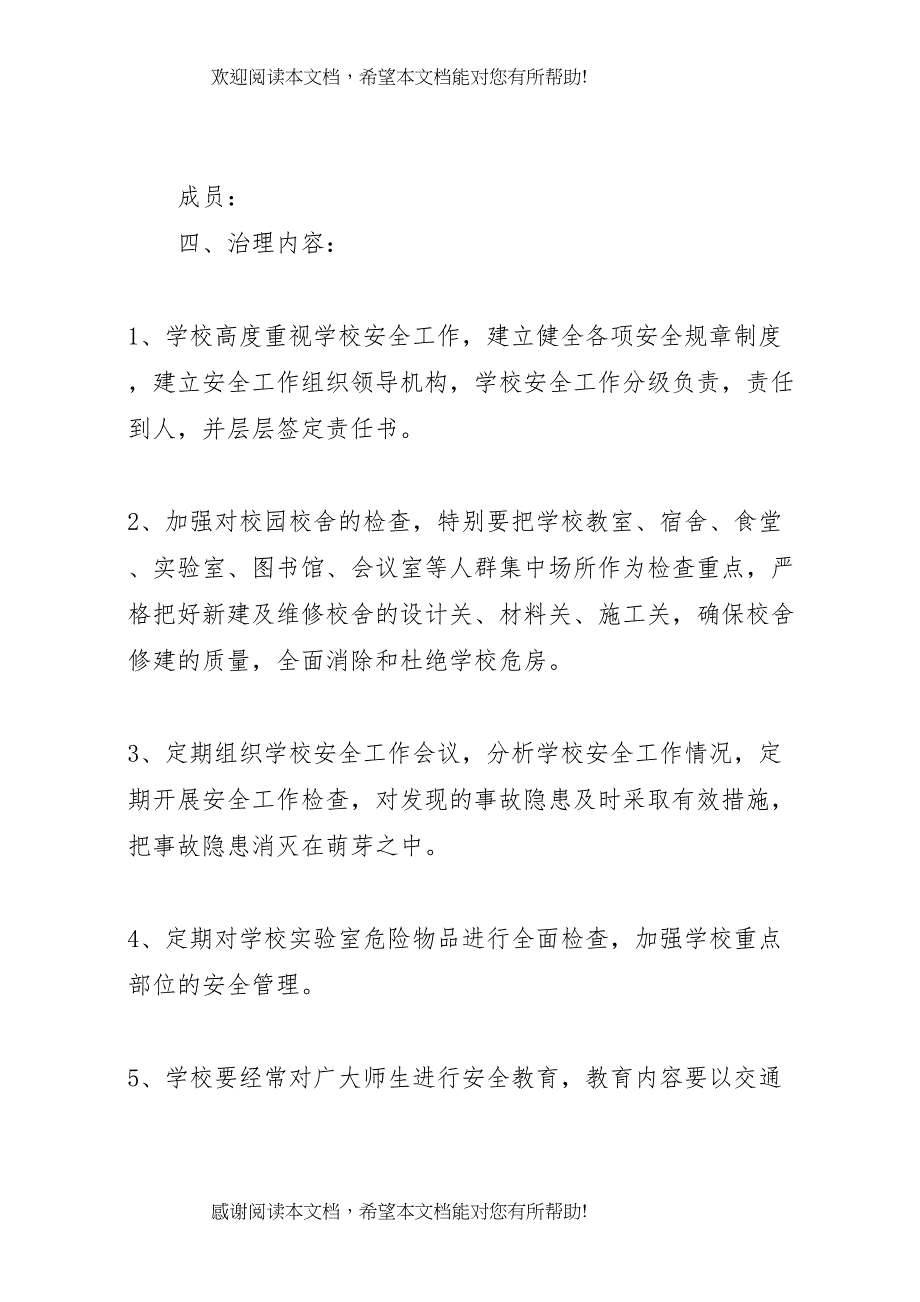 欢迎阅读本文档，希望本文档能对您有所帮助!
成员：
四、治理内容：
1、学校高度重视学校安全工作，建立健全各项安全规章制度
，建立安全工作组织领导机构，学校安全工作分级负责，责任
到人，并层层签定责任书。
2、加强对校园校舍的检查，特别要把学校教室、宿舍、食堂
、实验室、图书馆、会议室等人群集中场所作为检查重点，严
格把好新建及维修校舍的设计关、材料关、施工关，确保校舍
修建的质量，全面消除和杜绝学校危房。
3、定期组织学校安全工作会议，分析学校安全工作情况，定
期开展安全工作检查，对发现的事故隐患及时采取有效措施，
把事故隐患消灭在萌芽之中。
4、定期对学校实验室危险物品进行全面检查，加强学校重点
部位的安全管理。
5、学校要经常对广大师生进行安全教育，教育内容要以交通
感谢阅读本文档，希望本文档能对您有所帮助!